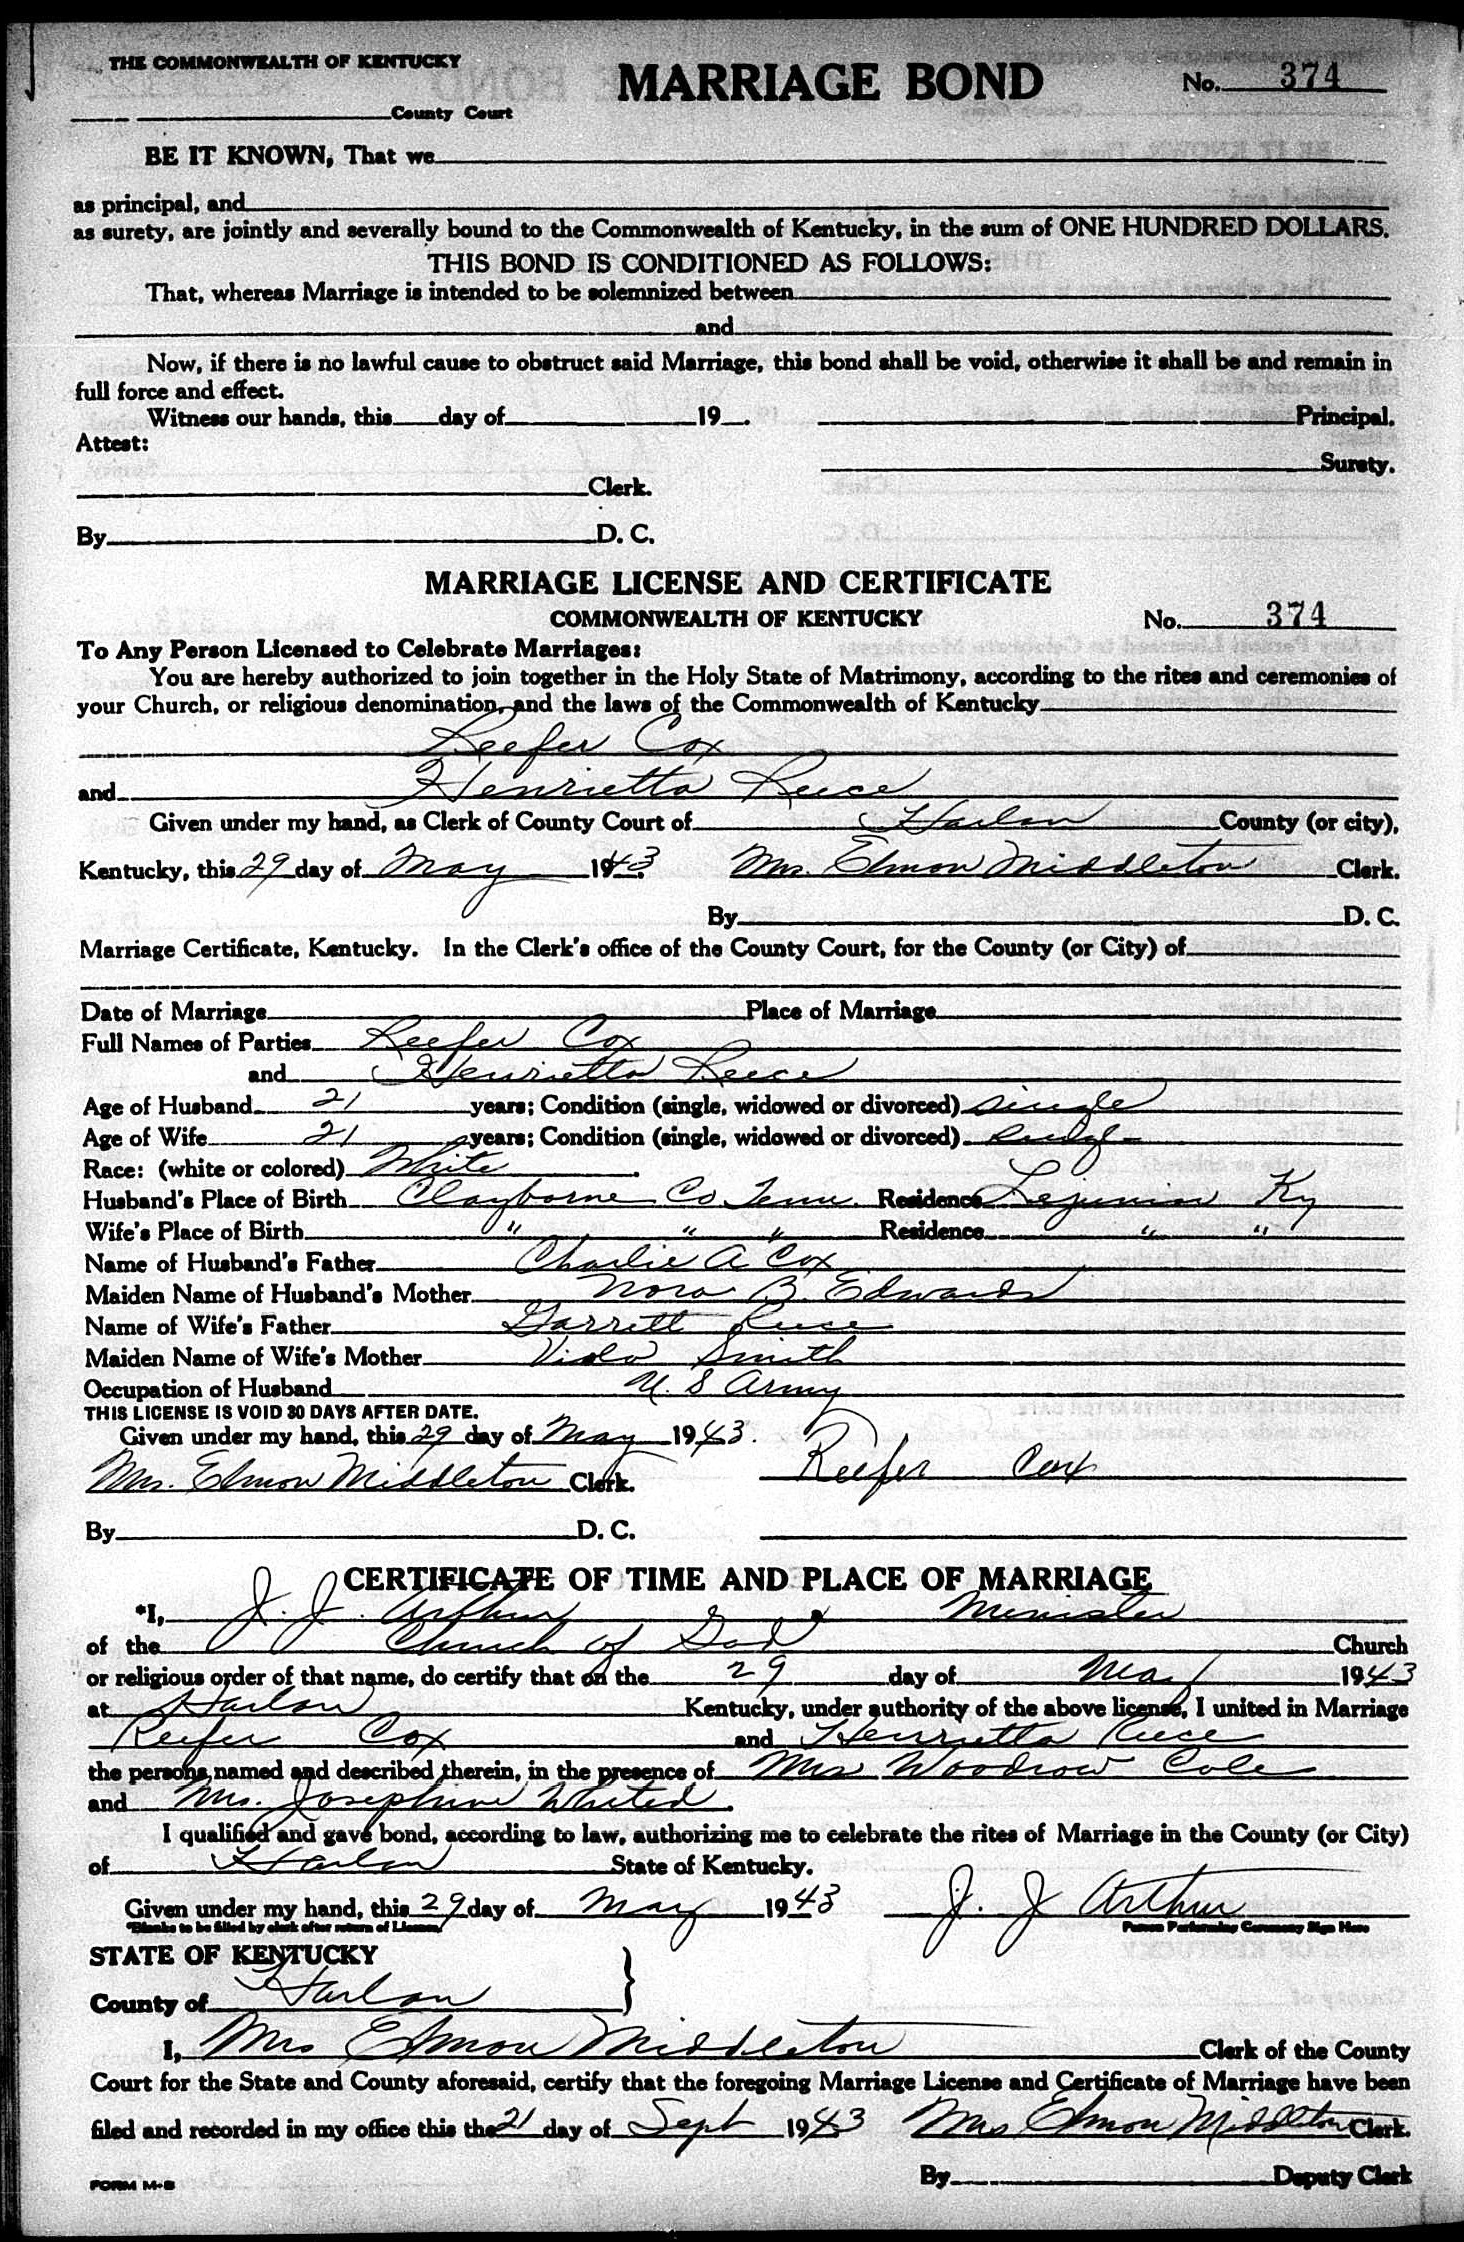 THE COMMONWEALTH OF KENTUCKY
MARRIAGE BOND
No. 374
County Court
BE IT KNOWN, That we
as principal, and
as surety, are jointly and severally bound to the Commonwealth of Kentucky, in the sum of ONE HUNDRED DOLLARS.
THIS BOND IS CONDITIONED AS FOLLOWS:
That, whereas Marriage is intended to be solemnized between
and
Now, if there is no lawful cause to obstruct said Marriage, this bond shall be void, otherwise it shall be and remain in
full force and effect.
Witness our hands, this day of 19 . Principal.
Attest:
Surety.
Clerk.
By D. C.
MARRIAGE LICENSE AND CERTIFICATE
COMMONWEALTH OF KENTUCKY No. 374
To Any Person Licensed to Celebrate Marriages:
You are hereby authorized to join together in the Holy State of Matrimony, according to the rites and ceremonies of
your Church, or religious denomination, and the laws of the Commonwealth of Kentucky
Reefer Cox
and Henrietta Reece
Given under my hand, as Clerk of County Court of Harlan County (or city),
Kentucky, this 29 day of May 1943 Mrs. Elmon Middleton Clerk.
By D. C.
Marriage Certificate, Kentucky. In the Clerk's office of the County Court, for the County (or City) of
Date of Marriage Place of Marriage
Full Names of Parties Reefer Cox
and Henrietta Reece
Age of Husband 21 years; Condition (single, widowed or divorced) single
Age of Wife 21 years; Condition (single, widowed or divorced) single
Race: (white or colored) White .
Husband's Place of Birth Clayborne Co Tenn. Residence Lejunior Ky
Wife's Place of Birth " " " Residence " "
Name of Husband's Father Charlie A Cox
Maiden Name of Husband's Mother Nora B. Edwards
Name of Wife's Father Garrett Reece
Maiden Name of Wife's Mother Viola Smith
Occupation of Husband U. S Army
THIS LICENSE IS VOID 30 DAYS AFTER DATE.
Given under my hand, this 29 day of May 1943.
Mrs. Elmon Middleton Clerk. Reefer Cox
By D. C.
CERTIFICATE OF TIME AND PLACE OF MARRIAGE
*I, J. J. Arthur a Minister
of the Church of God Church
or religious order of that name, do certify that on the 29 day of May 1943
at Harlan Kentucky, under authority of the above license, I united in Marriage
Reefer Cox and Henrietta Reece
the persons named and described therein, in the presence of Mrs Woodrow Cole
and Mrs. Josephine Whited .
I qualified and gave bond, according to law, authorizing me to celebrate the rites of Marriage in the County (or City)
of Harlan State of Kentucky.
Given under my hand, this 29 day of May 1943 J. J Arthur
*Blanks to be filled by clerk after return of License. Person Performing Ceremony Sign Here
STATE OF KENTUCKY
County of Harlan }
I, Mrs Elmon Middleton Clerk of the County
Court for the State and County aforesaid, certify that the foregoing Marriage License and Certificate of Marriage have been
filed and recorded in my office this the 21 day of Sept 1943 Mrs Elmon Middleton Clerk.
FORM M-B By Deputy Clerk